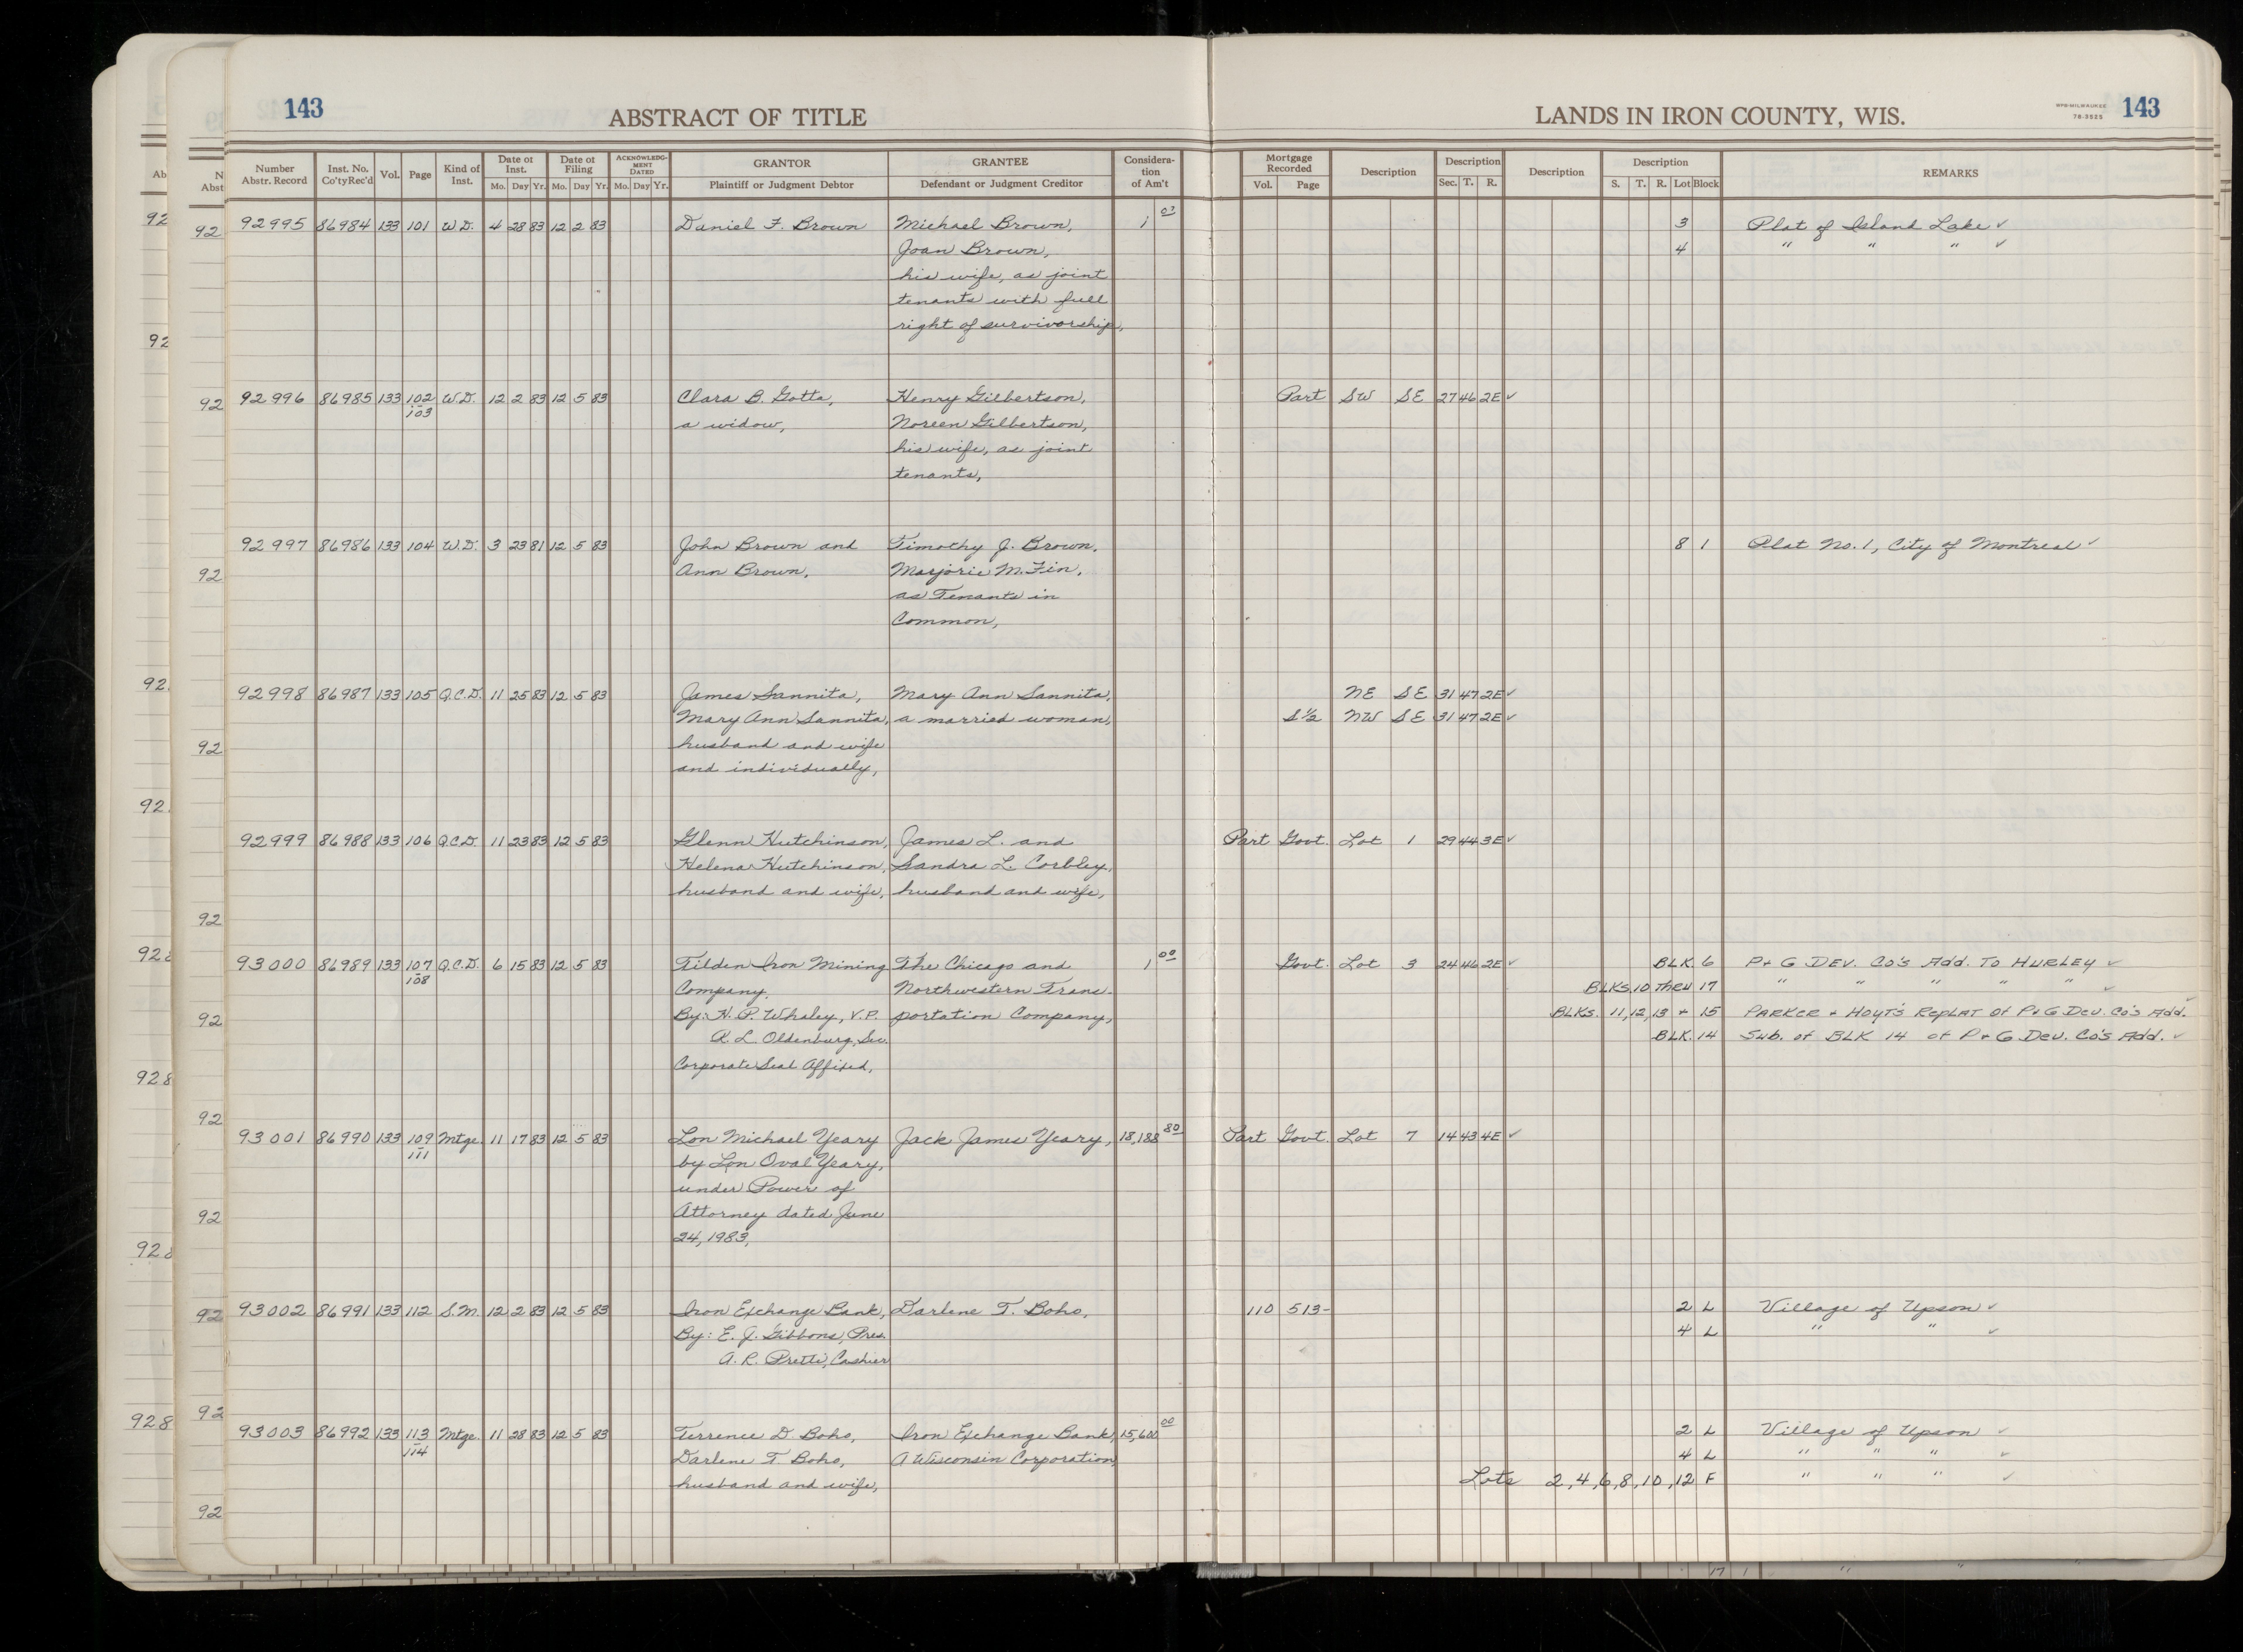 143 ABSTRACT OF TITLE LANDS IN IRON COUNTY, WIS. MPW-MILWAUKEE 78-3525 143
Number Abstr. Record Inst. No. Co'ty Rec'd Vol. Page Kind of Inst. Date of Inst. Mo. Day Yr. Date of Filing Mo. Day Yr. ACKNOWLEDGMENT DATED Mo. Day Yr. GRANTOR Plaintiff or Judgment Debtor GRANTEE Defendant or Judgment Creditor Consideration of Am't Mortgage Recorded Vol. Page Description Description Sec. T. R. Description Description S. T. R. Lot Block REMARKS
92995 86984 133 101 W.D. 4 28 83 12 2 83 Daniel F. Brown Michael Brown, 1 3 Plat of Island Lake ✓
Joan Brown, 4 " " " ✓
his wife, as joint
tenants with full
right of survivorship,
92996 86985 133 102 W.D. 12 2 83 12 5 83 Clara B. Gotta, Henry Gilbertson, Part SW SE 27 46 2E ✓
103 a widow, Noreen Gilbertson,
his wife, as joint
tenants,
92997 86986 133 104 W.D. 3 23 81 12 5 83 John Brown and Timothy J. Brown, 8 1 Plat No. 1, City of Montreal ✓
Ann Brown, Marjorie M. Fin,
as Tenants in
Common,
92998 86987 133 105 Q.C.D. 11 25 83 12 5 83 James Sannita, Mary Ann Sannita, NE SE 31 47 2E ✓
Mary Ann Sannita, a married woman, S½ NW SE 31 47 2E ✓
husband and wife
and individually,
92999 86988 133 106 Q.C.D. 11 23 83 12 5 83 Glenn Hutchinson, James L. and Part Govt. Lot 1 29 44 3E ✓
Helena Hutchinson, Sandra L. Corbley,
husband and wife, husband and wife,
93000 86989 133 107 Q.C.D. 6 15 83 12 5 83 Tilden Iron Mining The Chicago and 1 00 Govt. Lot 3 24 46 2E ✓ BLK. 6 P+G DEV. CO'S Add. TO HURLEY ✓
108 Company, Northwestern Trans- BLKS. 10 THRU 17 " " " " " ✓
By: H. P. Whaley, V.P. portation Company, BLKS. 11, 12, 13 + 15 PARKER + HOYT'S RepLAT of P+G Dev. Co's Add. ✓
R. L. Oldenburg, Sec. BLK. 14 Sub. of BLK 14 of P+G Dev. Co's Add. ✓
Corporate Seal Affixed,
93001 86990 133 109 Mtge. 11 17 83 12 5 83 Lon Michael Yeary Jack James Yeary, 18,188 80 Part Govt. Lot 7 14 43 4E ✓
111 by Lon Oval Yeary,
under Power of
Attorney dated June
24, 1983,
93002 86991 133 112 S.M. 12 2 83 12 5 83 Iron Exchange Bank, Darlene T. Boho, 110 513- 2 L Village of Upson ✓
By: E. J. Gibbons, Pres. 4 L " " ✓
A. R. Pretti, Cashier
93003 86992 133 113 Mtge. 11 28 83 12 5 83 Terrence D. Boho, Iron Exchange Bank, 15,600 00 2 L Village of Upson ✓
114 Darlene T Boho, A Wisconsin Corporation, 4 L " " " ✓
husband and wife, Lots 2, 4, 6, 8, 10, 12 F " " " ✓